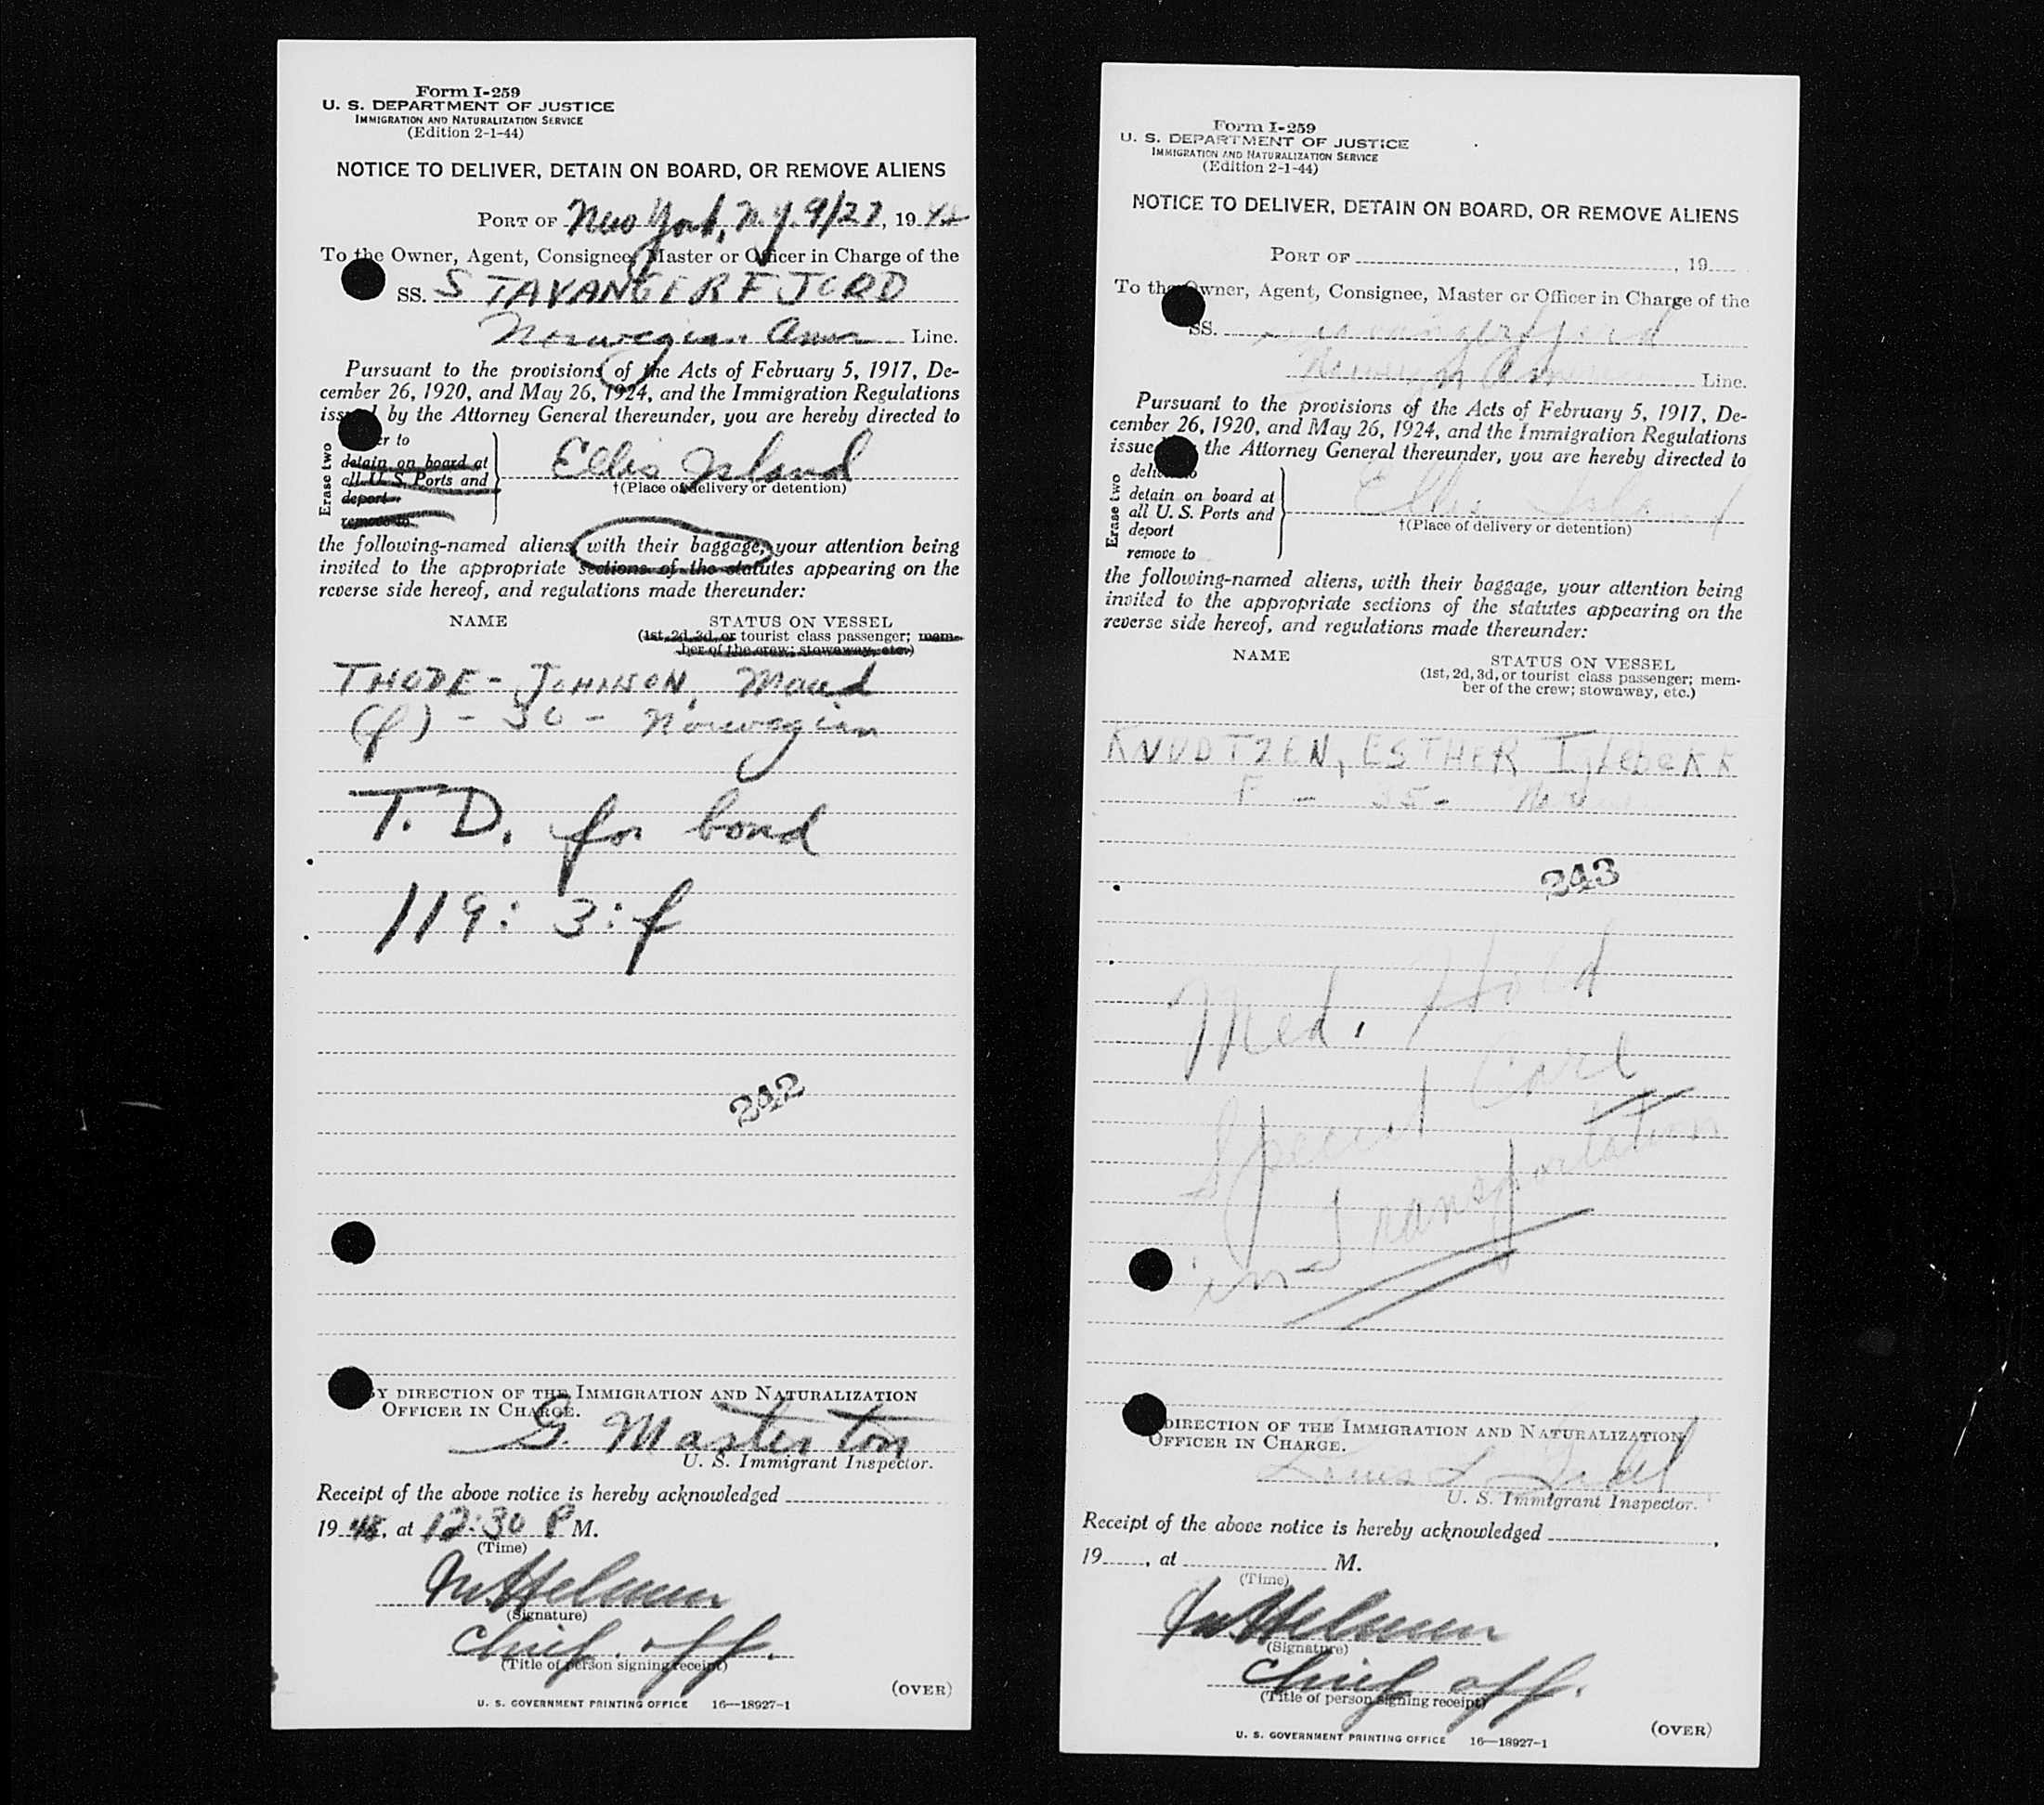 Form I-259
U. S. DEPARTMENT OF JUSTICE
IMMIGRATION AND NATURALIZATION SERVICE
(Edition 2-1-44)
NOTICE TO DELIVER, DETAIN ON BOARD, OR REMOVE ALIENS
PORT OF New York, N.Y. 9/27, 19
To the Owner, Agent, Consignee, Master or Officer in Charge of the
SS. STAVANGERFJORD
Norwegian Amer Line.
Pursuant to the provisions of the Acts of February 5, 1917, De-
cember 26, 1920, and May 26, 1924, and the Immigration Regulations
issued by the Attorney General thereunder, you are hereby directed to
Erase two
er to
detain on board at
all U. S. Ports and
deport
remove to
Ellis Island
†(Place of delivery or detention)
the following-named aliens, with their baggage, your attention being
invited to the appropriate sections of the statutes appearing on the
reverse side hereof, and regulations made thereunder:
NAME STATUS ON VESSEL
(1st, 2d, 3d, or tourist class passenger; mem-
ber of the crew; stowaway, etc.)
THODE-JOHNSON, Maud
(f) - 36 - Norwegian
T.D. for bond
119: 3: f
242
BY DIRECTION OF THE IMMIGRATION AND NATURALIZATION
OFFICER IN CHARGE.
G. Masterton
U. S. Immigrant Inspector.
Receipt of the above notice is hereby acknowledged
1948, at 12:30 P M.
(Time)
(Signature)
Chief off.
(Title of person signing receipt)
(OVER)
U. S. GOVERNMENT PRINTING OFFICE 16—18927-1
Form I-259
U. S. DEPARTMENT OF JUSTICE
IMMIGRATION AND NATURALIZATION SERVICE
(Edition 2-1-44)
NOTICE TO DELIVER, DETAIN ON BOARD, OR REMOVE ALIENS
PORT OF , 19
To the Owner, Agent, Consignee, Master or Officer in Charge of the
SS. Stavangerfjord
Norweg Amer Line.
Pursuant to the provisions of the Acts of February 5, 1917, De-
cember 26, 1920, and May 26, 1924, and the Immigration Regulations
issued the Attorney General thereunder, you are hereby directed to
Erase two
deliver to
detain on board at
all U. S. Ports and
deport
remove to
Ellis Island
†(Place of delivery or detention)
the following-named aliens, with their baggage, your attention being
invited to the appropriate sections of the statutes appearing on the
reverse side hereof, and regulations made thereunder:
NAME STATUS ON VESSEL
(1st, 2d, 3d, or tourist class passenger; mem-
ber of the crew; stowaway, etc.)
KNUDTZEN, ESTHER Iglebekk
F - 35 -
243
Med. Hold
Special Care
in Transportation
DIRECTION OF THE IMMIGRATION AND NATURALIZATION
OFFICER IN CHARGE.
Louis L.
U. S. Immigrant Inspector.
Receipt of the above notice is hereby acknowledged ,
19 , at M.
(Time)
(Signature)
Chief off.
(Title of person signing receipt)
(OVER)
U. S. GOVERNMENT PRINTING OFFICE 16—18927-1